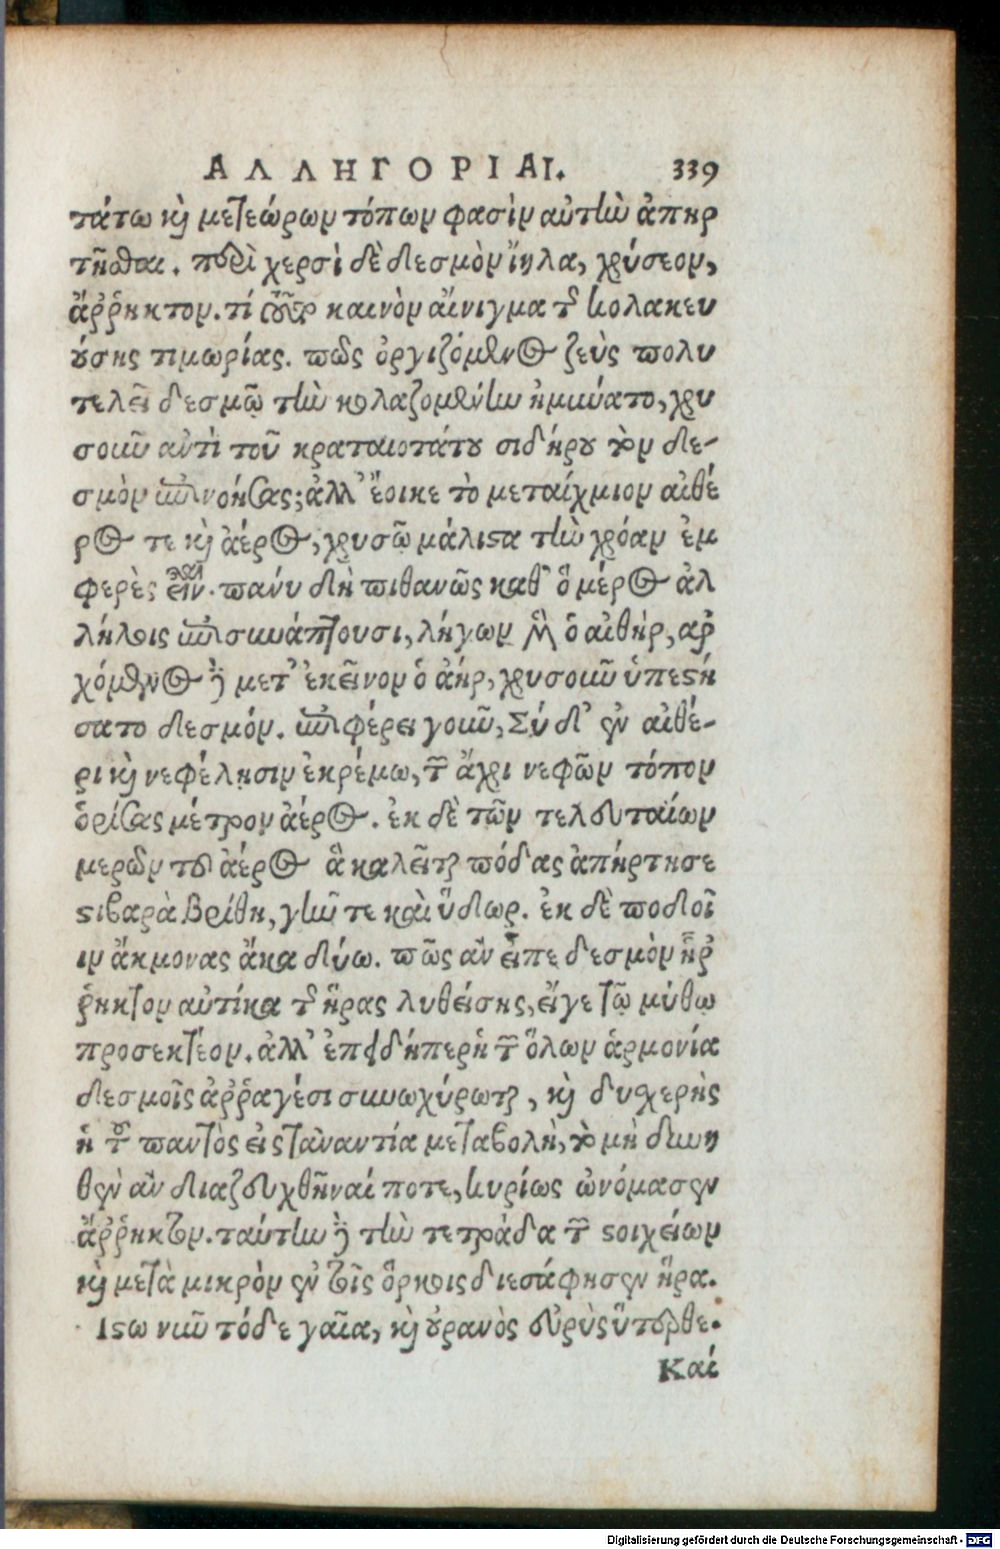 ΑΛΛΗΓΟΡΙΑΙ. 339
τάτω καὶ μετεώρων τόπων φασὶν αὐτὴν ἀπηρ
τῆσθαι. περὶ χερσὶ δὲ δεσμὸν ἴηλα, χρύσεον,
ἄῤῥηκτον. τί οὖν καινὸν αἴνιγμα τῆς κολακευ
ούσης τιμωρίας. πῶς ὀργιζόμενος ζεὺς πολυ
τελεῖ δεσμῷ τὴν κολαζομένην ἠμύνατο, χρυ
σοῦν αὐτὶ τοῦ κραταιοτάτου σιδήρου τὸν δε-
σμὸν ἐπινοήσας; ἀλλ' ἔοικε τὸ μεταίχμιον αἰθέ
ρος τε καὶ ἀέρος, χρυσῷ μάλιστα τὴν χρόαν ἐμ
φερὲς εἶναι. πάνυ δὴ πιθανῶς καθ' ὃ μέρος ἀλ
λήλοις ἐπισυνάπτουσι, λήγων μὲν ὁ αἰθὴρ, ἀρ
χόμενος δὲ μετ' ἐκεῖνον ὁ ἀήρ, χρυσοῦν ὑπεστή
σατο δεσμόν. ἐπιφέρει γοῦν, Σὺ δ' ἐν αἰθέ-
ρι καὶ νεφέλησιν ἐκρέμω, τῶν ἄχρι νεφῶν τόπον
ὁρίσας μέτρον ἀέρος. ἐκ δὲ τῶν τελευταίων
μερῶν τοῦ ἀέρος ἃ καλεῖται πόδας ἀπήρτησε
στιβαρὰ βρίθη, γῆν τε καὶ ὕδωρ. ἐκ δὲ ποδοῖ
ιν ἄκμονας ἄκα δύω. πῶς ἂν εἶπε δεσμὸν ἄῤ
ῥηκτον αὐτίκα τῆς ἥρας λυθείσης, εἴγε τῷ μύθω
προσεκτέον. ἀλλ' ἐπειδήπερ ἡ τῶν ὅλων ἁρμονία
δεσμοῖς ἀῤῥαγέσι συνωχύρωται, καὶ δυσχερὴς
ἡ τοῦ παντὸς εἰς τἀναντία μεταβολὴ, τὸ μὴ δυνη
θὲν ἂν διαζευχθῆναί ποτε, κυρίως ὠνόμασεν
ἄῤῥηκτον. ταύτην δὲ τὴν τετράδα τῶν στοιχείων
καὶ μετὰ μικρὸν ἐν τοῖς ὅρκοις διεσάφησεν ἥρα.
Ιστω νῦν τόδε γαῖα, καὶ οὐρανὸς εὐρὺς ὕπερθε.
Καί
Digitalisierung gefördert durch die Deutsche Forschungsgemeinschaft - DFG